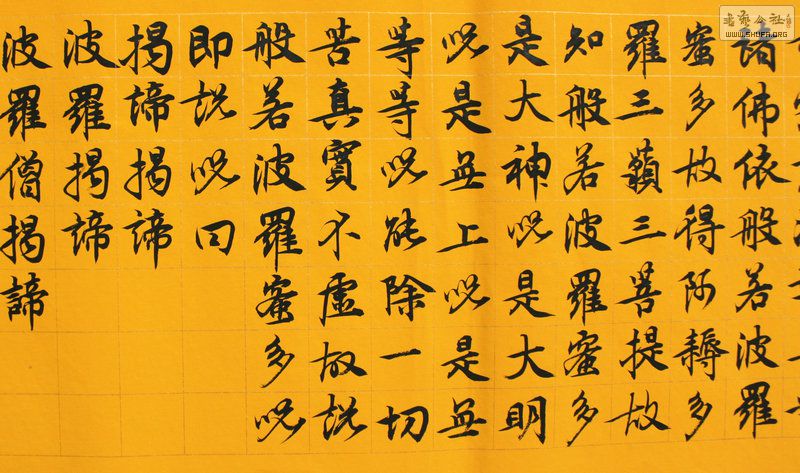 諸佛依般若波羅
蜜多故得阿耨多
羅三藐三菩提故
知般若波羅蜜多
是大神呪是大明
呪是無上呪是無
等等呪能除一切
苦真實不虛故說
般若波羅蜜多呪
即說呪曰
揭諦揭諦
波羅揭諦
波羅僧揭諦
書藝公社
WWW.SHUFA.ORG